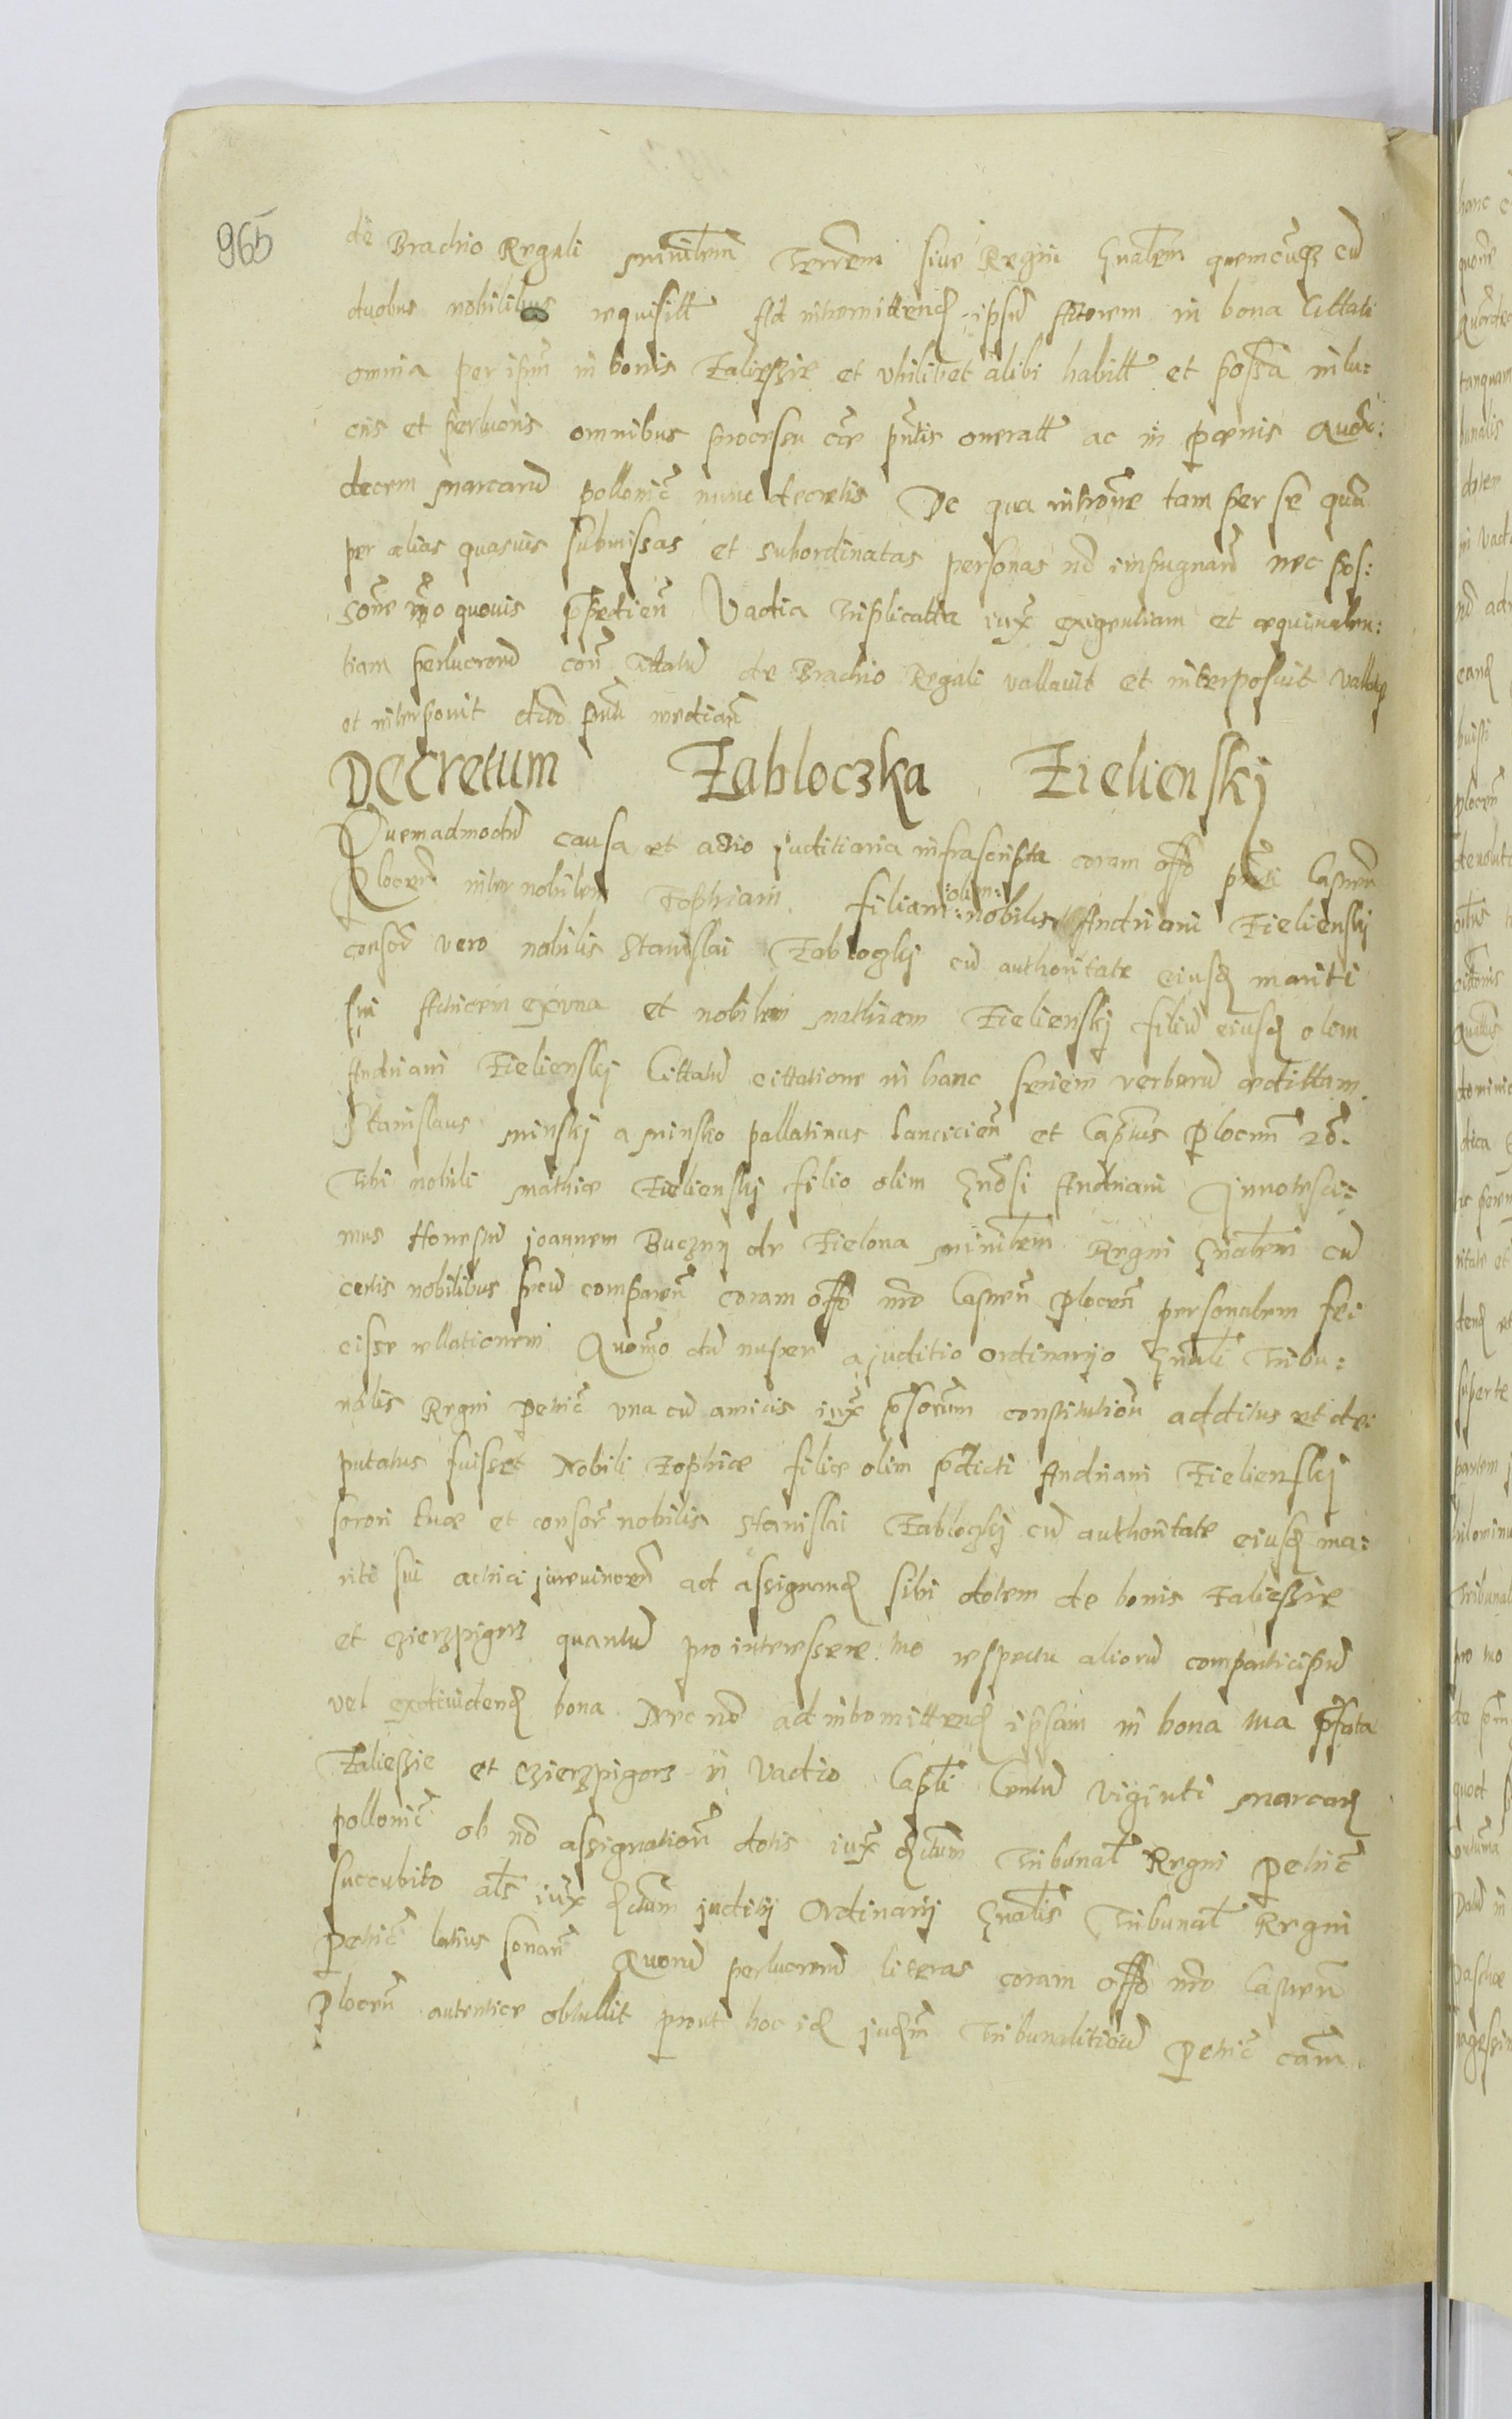 965
de Brachio Regali ministerialem Terrem sive Regni Gnalem quemcunq cu
duobus nobilibus requisitt Ad intromittend ipsu Actorem in bona Cittati
omnia per ipsum in bonis Zaliesszie et ubilibet alibi habitt et possa in lu:
cris et perlucris omnibus processu cae pntis oneratt ac in poenis Quat:
decem Marcaru pollonic nunc decretis De qua introne tam per se qua
per alias quasvis submissas et subordinatas personas no impugnand nec pos:
sone mo quovis Impedien Vadia Triplicatta iux exigentiam et aequivalen:
tiam perlucroru con Cittatu de Brachio Regali vallavit et interposuit vallatq
et interponit dto pnti median
Decretum Zabloczka Zielienskj
Quemadmodu causa et actio juditiaria infrascripta coram offo pnti Caprli
Plocen inter nobilem Zophiam filiam :olim: nobilis Andriani Zielienskj
consor vero nobilis Stanislai Zabloczkj cu authoritate eiusd mariti
sui Actricem ex una et nobilem Mathiam Zielienskj filiu eiusd olim
Andriani Zielienskj Cittatu cittatione in hanc seriem verboru aedittam.
Stanislaus Minskj a Minsko pallatinus Lancicien et Captus Plocen
Tibi nobili Mathiae Zielienskj filio olim Gnosi Andriani Innotesci:
mus Honestu joannem Buczny de Zielona ministerialem Regni Gnalem cu
certis nobilibus secu comparen coram offo nro Castren Plocen personalem fe:
cisse rellationem Quomo du nuper a juditio ordinarijo Gnali Tribu:
nalis Regni Petric una cu amicis iux pssorum constitution additus et de:
putatus fuisset Nobili Zophiae filiae olim pdicti Andriani Zielienskj
sorori tuae et consor nobilis Stanislai Zabloczkj cu authoritate eiusd ma:
riti sui actrici jurevincen ad assignand sibi dotem de bonis Zaliesszie
et Czierzpigorz quantu pro interessere tuo respectu alioru comparticipu
vel exdividend bona Nec no ad intromittend ipsam in bona tua pfata
Zaliesszie et Czierzpigorz in Vadio Captli Centu viginti Marcar
pollonic ob no assignation dotis iux dctum Tribunal Regni Petric
succubito als iux dctum juditij Ordinarij Gnalis Tribunal Regni
Petric latius sonan Quoru perlucroru literas coram offo nro Castren
Plocen autentice obtullit prout hoc id judm Tribunalitiu Petric cam